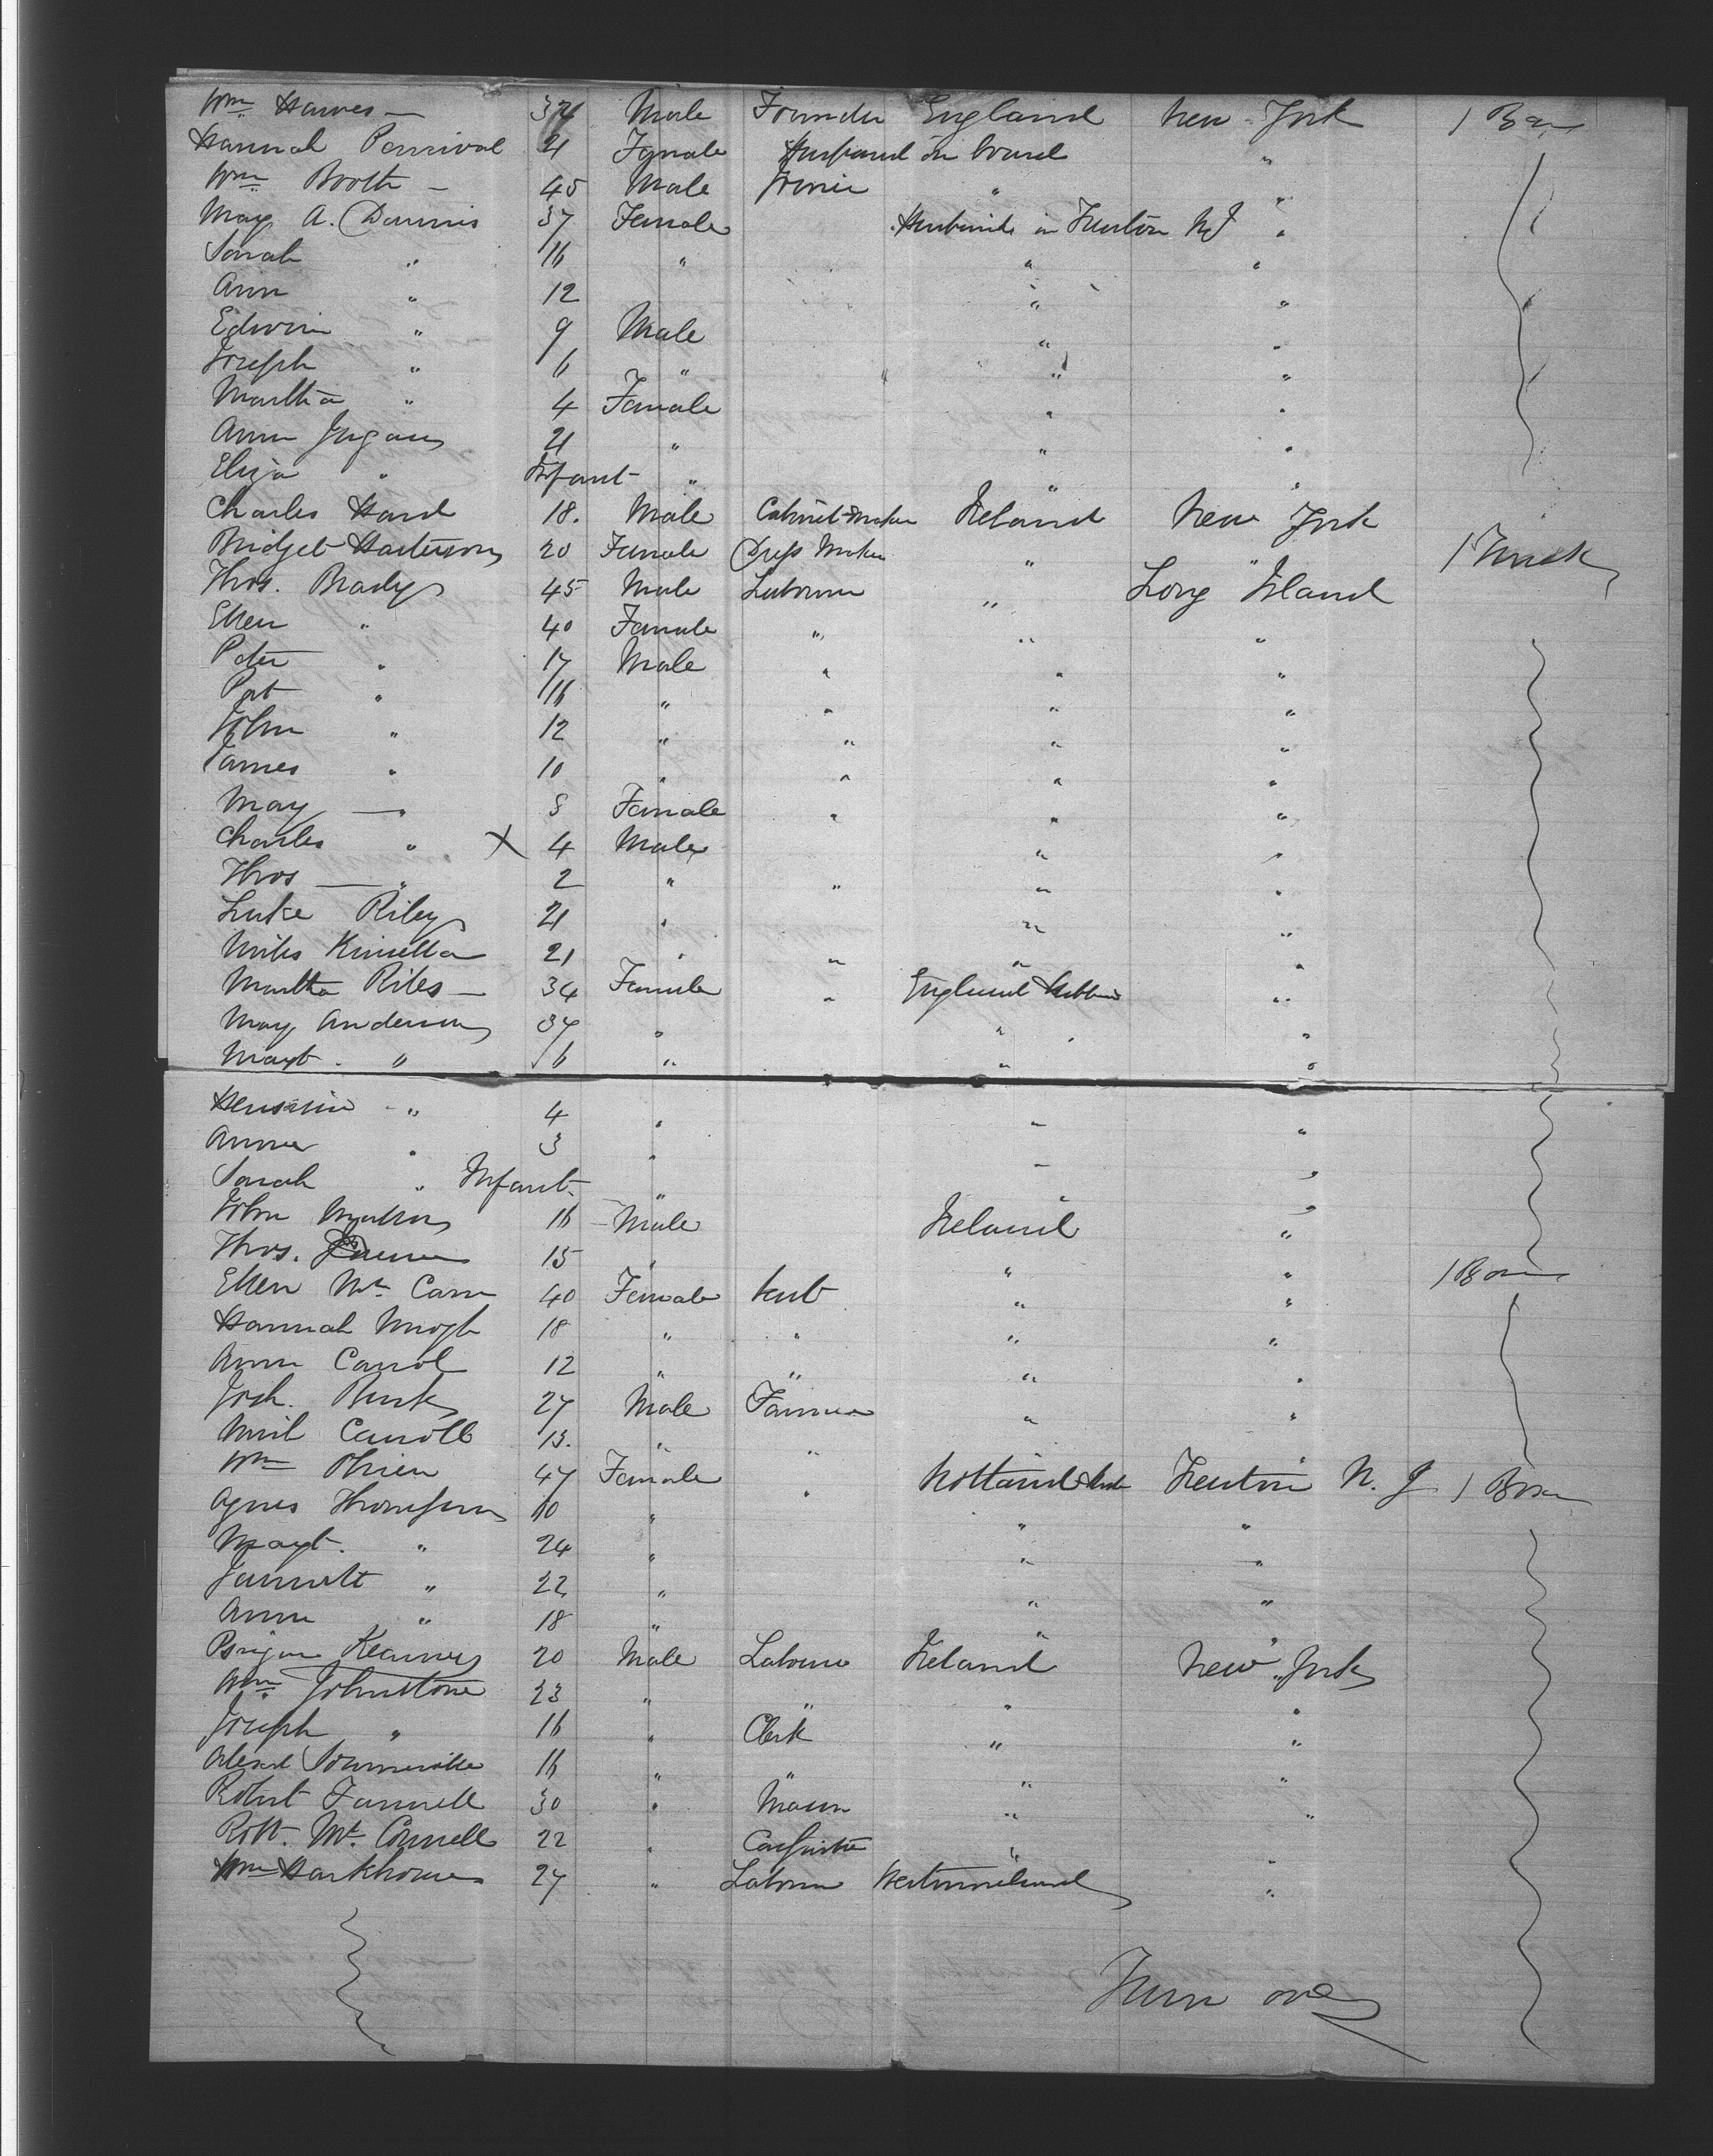 Wm Hawes — 34 Male Founder England New York 1 Box
Hannah Percival 21 Female Husband on board "
Wm Booth — 45 Male " "
May A. Dannis 37 Female Husband in Trenton NJ "
Sarah " 16 " " "
Ann " 12 " "
Edwin " 9 Male " "
Joseph " 6 " " "
Martha " 4 Female " "
Ann 21 " " "
Eliza " Infant " " "
Charles Hand 18. Male Cabinet Maker Ireland New York
Bridget 20 Female Dress Maker " " 1 Trunk
Thos. Brady 45 Male Labourer " Long Island
Ellen " 40 Female " " "
Peter " 17 Male " " "
Pat " 16 " " " "
John " 12 " " " "
James " 10 " " " "
May — " 8 Female " " "
Charles " X 4 Male " "
Thos — " 2 " " " "
Luke Riley 21 " " "
Miles Kinsella 21 " " " "
Martha Riles — 34 Female " England "
May Anderson 34 " " "
Magt. " 6 " " "
" 4 " " "
Annie " 3 " " "
Sarah " Infant. " " "
John 16 Male Ireland "
Thos. 15 " " "
Ellen Mc Cann 40 Female " " 1 Box
Hannah 18 " " " "
Ann Carrol 12 " " " "
Josh. Burk 27 Male Farmer " "
Carroll 13. " "
Wm 47 Female " Trenton N. J 1 Box
Agnes Thompson 10 " " "
Magt. " 24 " " "
Jannett " 22 " " "
Ann " 18 " " "
Kearney 20 Male Labourer Ireland New York
Wm Johnstone 23 " " " "
Joseph " 16 " Clerk " "
Alexd Sommerville 16 " " " "
Robert Farrell 30 " Mason " "
Robt. Mc Connell 22 " Carpenter " "
Wm 27 " Labourer Westmoreland "
Turn over